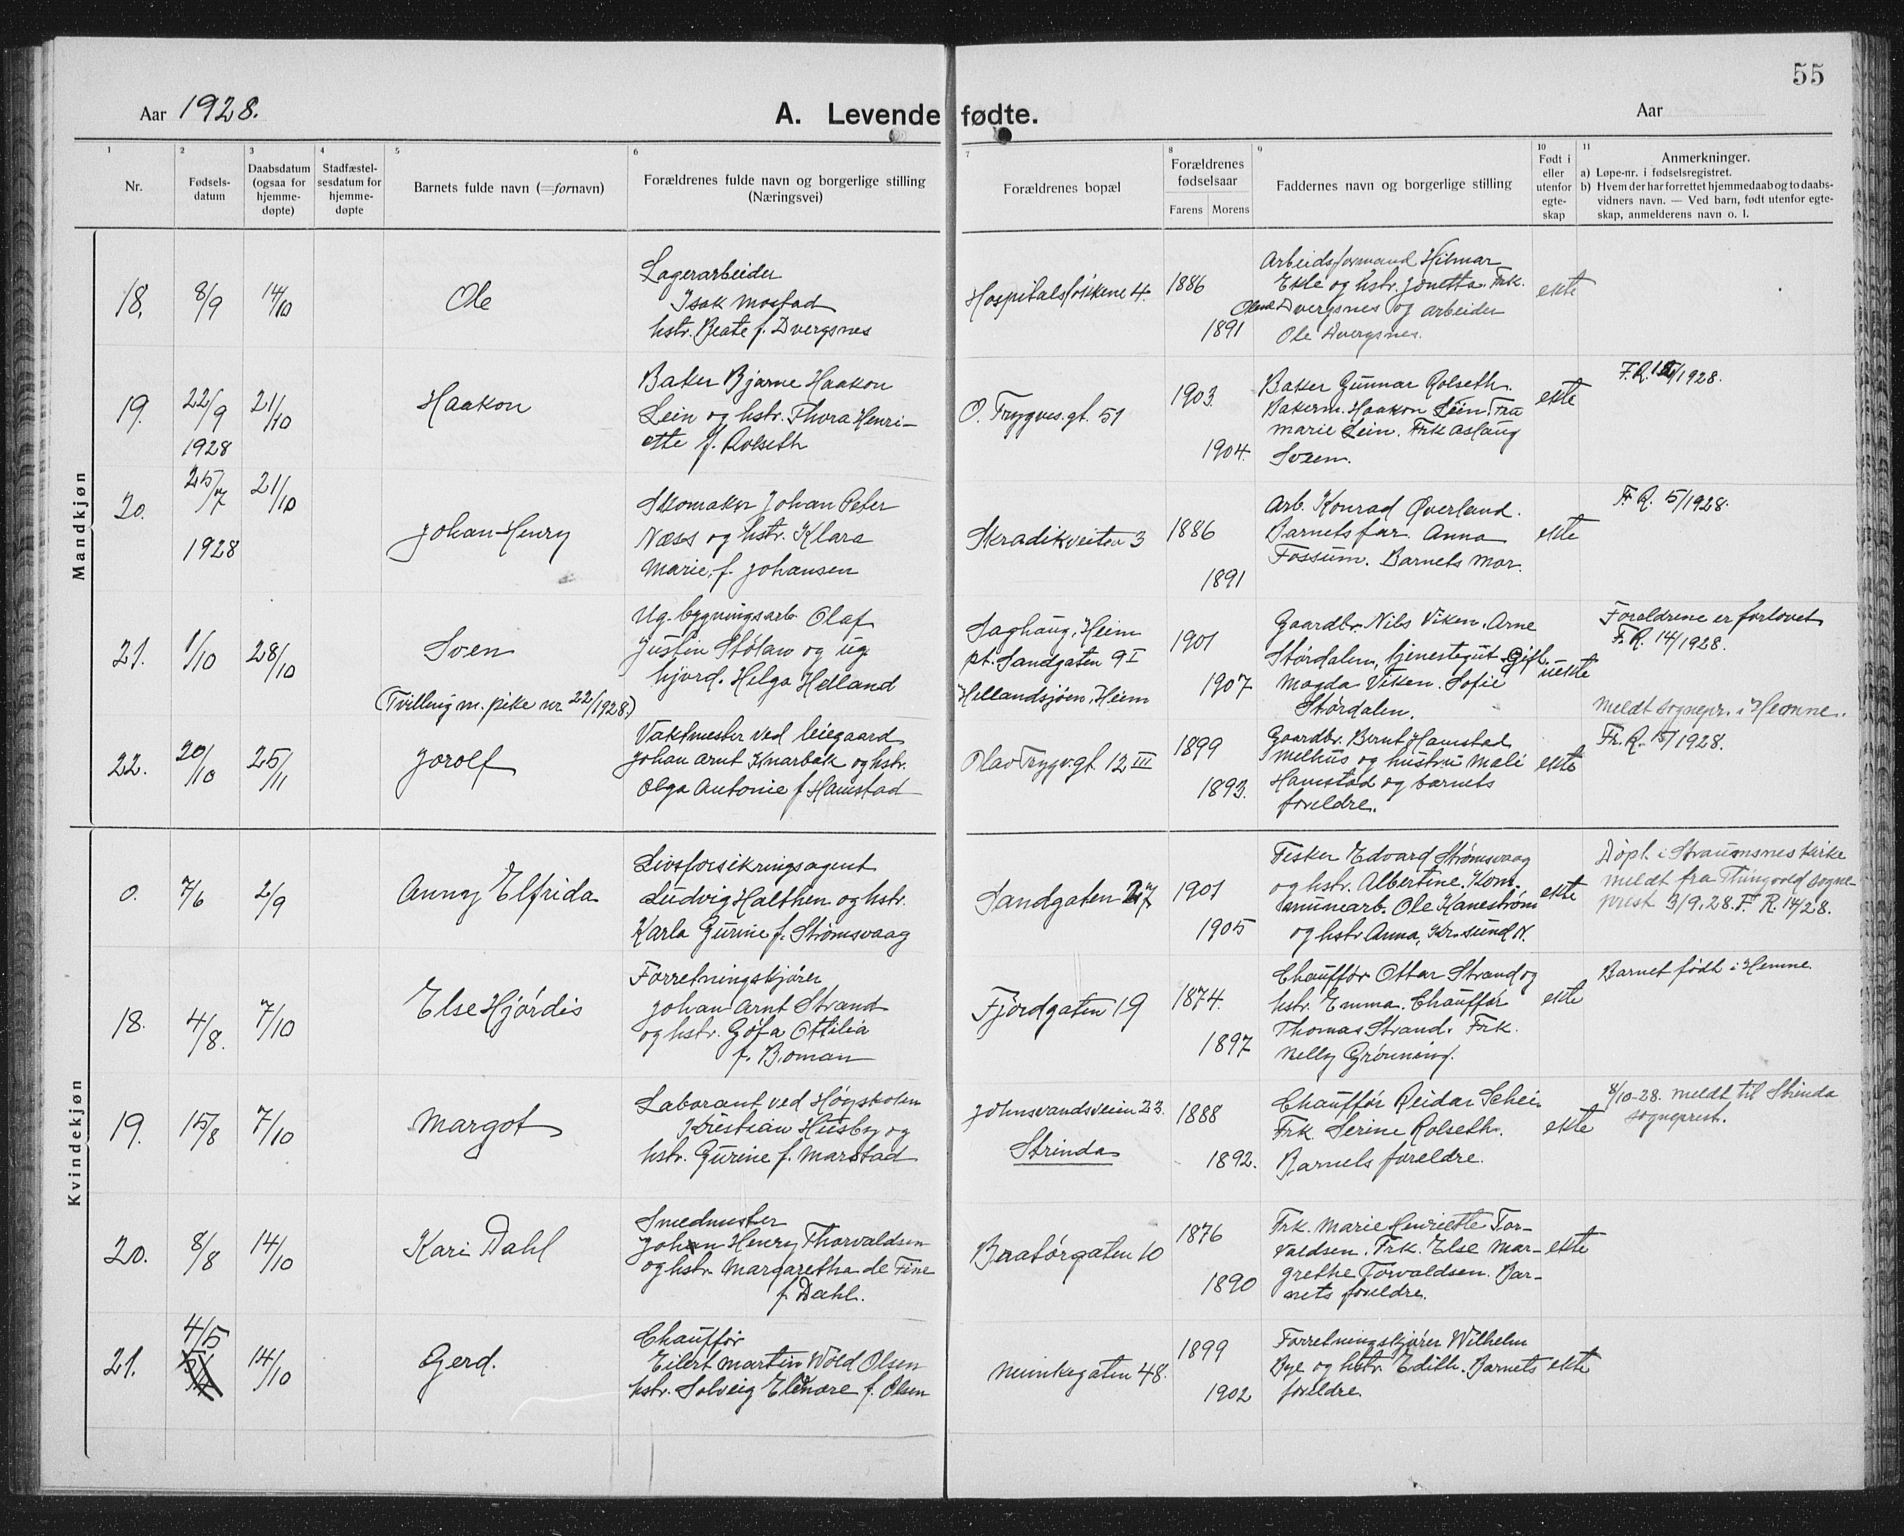 55
Aar 1928.
A. Levende fødte.
Aar
1 2 3 4 5 6 7 8 9 10 11
Nr.
Fødsels-
datum
Daabsdatum
(ogsaa for
hjemme-
døpte)
Stadfæstel-
sesdatum for
hjemme-
døpte
Barnets fulde navn (=fornavn)
Forældrenes fulde navn og borgerlige stilling
(Næringsvei)
Forældrenes bopæl
Forældrenes
fødselsaar
Farens Morens
Faddernes navn og borgerlig stilling
Født i
eller
utenfor
egte-
skap
Anmerkninger.
a) Løpe-nr. i fødselsregistret.
b) Hvem der har forrettet hjemmedaab og to daabs-
vidners navn. — Ved barn, født utenfor egte-
skap, anmelderens navn o. l.
Mandkjøn
18. 8/9 14/10 Ole
Lagerarbeider
Isak Mostad
hstr. Beate f. Dvergsnes
Hospitalsløkkene 4.
1886
1891
Arbeidsformand Hilmar
Ekle og hstr. Jonetta. Frk.
Dvergsnes og arbeider
Ole Dvergsnes.
ekte
19. 22/9 1928 21/10 Haakon
Baker Bjarne Haakon
Lein og hstr. Thora Henri-
ette f. Rolseth
O. Trygves.gt. 51
1903.
1904.
Baker Gunnar Rolseth.
Bakerm. Haakon Lein. Fra
Marie Lein. Frk Aslaug
Svem.
ekte
F.R. /1928.
20. 25/7 1928 21/10 Johan Henry
Skomaker Johan Peter
Næss og hstr. Klara
Marie, f. Johansen
Skradikveiten 3
1886
1891
Arb. Konrad Øverland.
Barnets far. Anna
Fossum. Barnets mor.
ekte
F. R. 5/1928.
21. 1/10 28/10 Sven
(Tvilling m. pike nr 22/1928.)
Ug. bygningsarb. Olaf
Justin Stølan og ug.
hjord. Helga Helland
Saghaug, Heim
pt. Sandgaten 9 I
Hellandsjøen, Heim
1901
1907
Gaardbr. Nils Viken. Arne
Størdalen, tjenestegut. Gift.
Magda Viken. Sofie
Størdalen.
uekte
Foreldrene er forlovet
F. R. 14/1928.
Meldt sognepr. i Hemne.
22. 20/10 25/11 Jorolf
Vaktmester ved leiegaard
Johan Arnt Kvarbak og hstr.
Olga Antonie f. Hamstad
Olav Trygv.gt. 12 III
1899
1893.
Gaardbr. Bernt Hamstad
Melhus og hustru Mali
Hamstad og barnets
foreldre.
ekte
Fr. R. 15/1928.
Kvindekjøn
0. 7/6 2/9 Anny Elfrida
Livsforsikringsagent
Ludvig Halthen og hstr.
Karla Gurine f. Strømsvaag
Sandgaten 27
1901
1905
Fisker Edvard Strømsvaag
og hstr. Albertine. Kom-
munearb. Ole Hanestrøm
og hstr Anna, Kr.sund N.
ekte
Døpt i Straumsnes kirke
meldt fra Thingvold sogne-
prest 3/9.28. F. R. 14/28.
18. 4/8. 7/10 Else Hjørdis
Forretningskjører
Johan Arnt Strand
og hstr. Gøfa Ottilia
f. Boman
Fjordgaten 19
1874.
1897
Chauffør Ottar Strand og
hstr. Emma. Chauffør
Thomas Strand. Frk.
Nelly Grønning.
ekte
Barnet født i Hemne.
19. 15/8 7/10 Margot
Laborant ved Høgskolen
Kristian Husby og
hstr. Gurine f. Marstad
Johnsvandsveien 23.
Strinda
1888
1892.
Chauffør Reidar Schei
Frk. Serine Rolseth.
Barnets foreldre.
ekte
8/10-28. meldt til Strinda
sogneprest.
20. 8/8 14/10 Kari Dahl
Smedmester
Johan Henry Thorvaldsen
og hstr. Margaretha de Fine
f. Dahl.
Bratørgaten 10
1876
1890
Frk. Marie Henriette Tor-
valdsen. Frk. Else Mar-
grethe Torvaldsen. Bar-
nets foreldre.
ekte
21. 4/5 14/10 Gerd.
Chauffør
Eilert Martin Wold Olsen
hstr. Solveig Elenore f. Olsen
Munkegaten 48.
1899
1902
Forretningskjører Wilhelm
Bye og hstr. Edith. Barnets
foreldre.
ekte